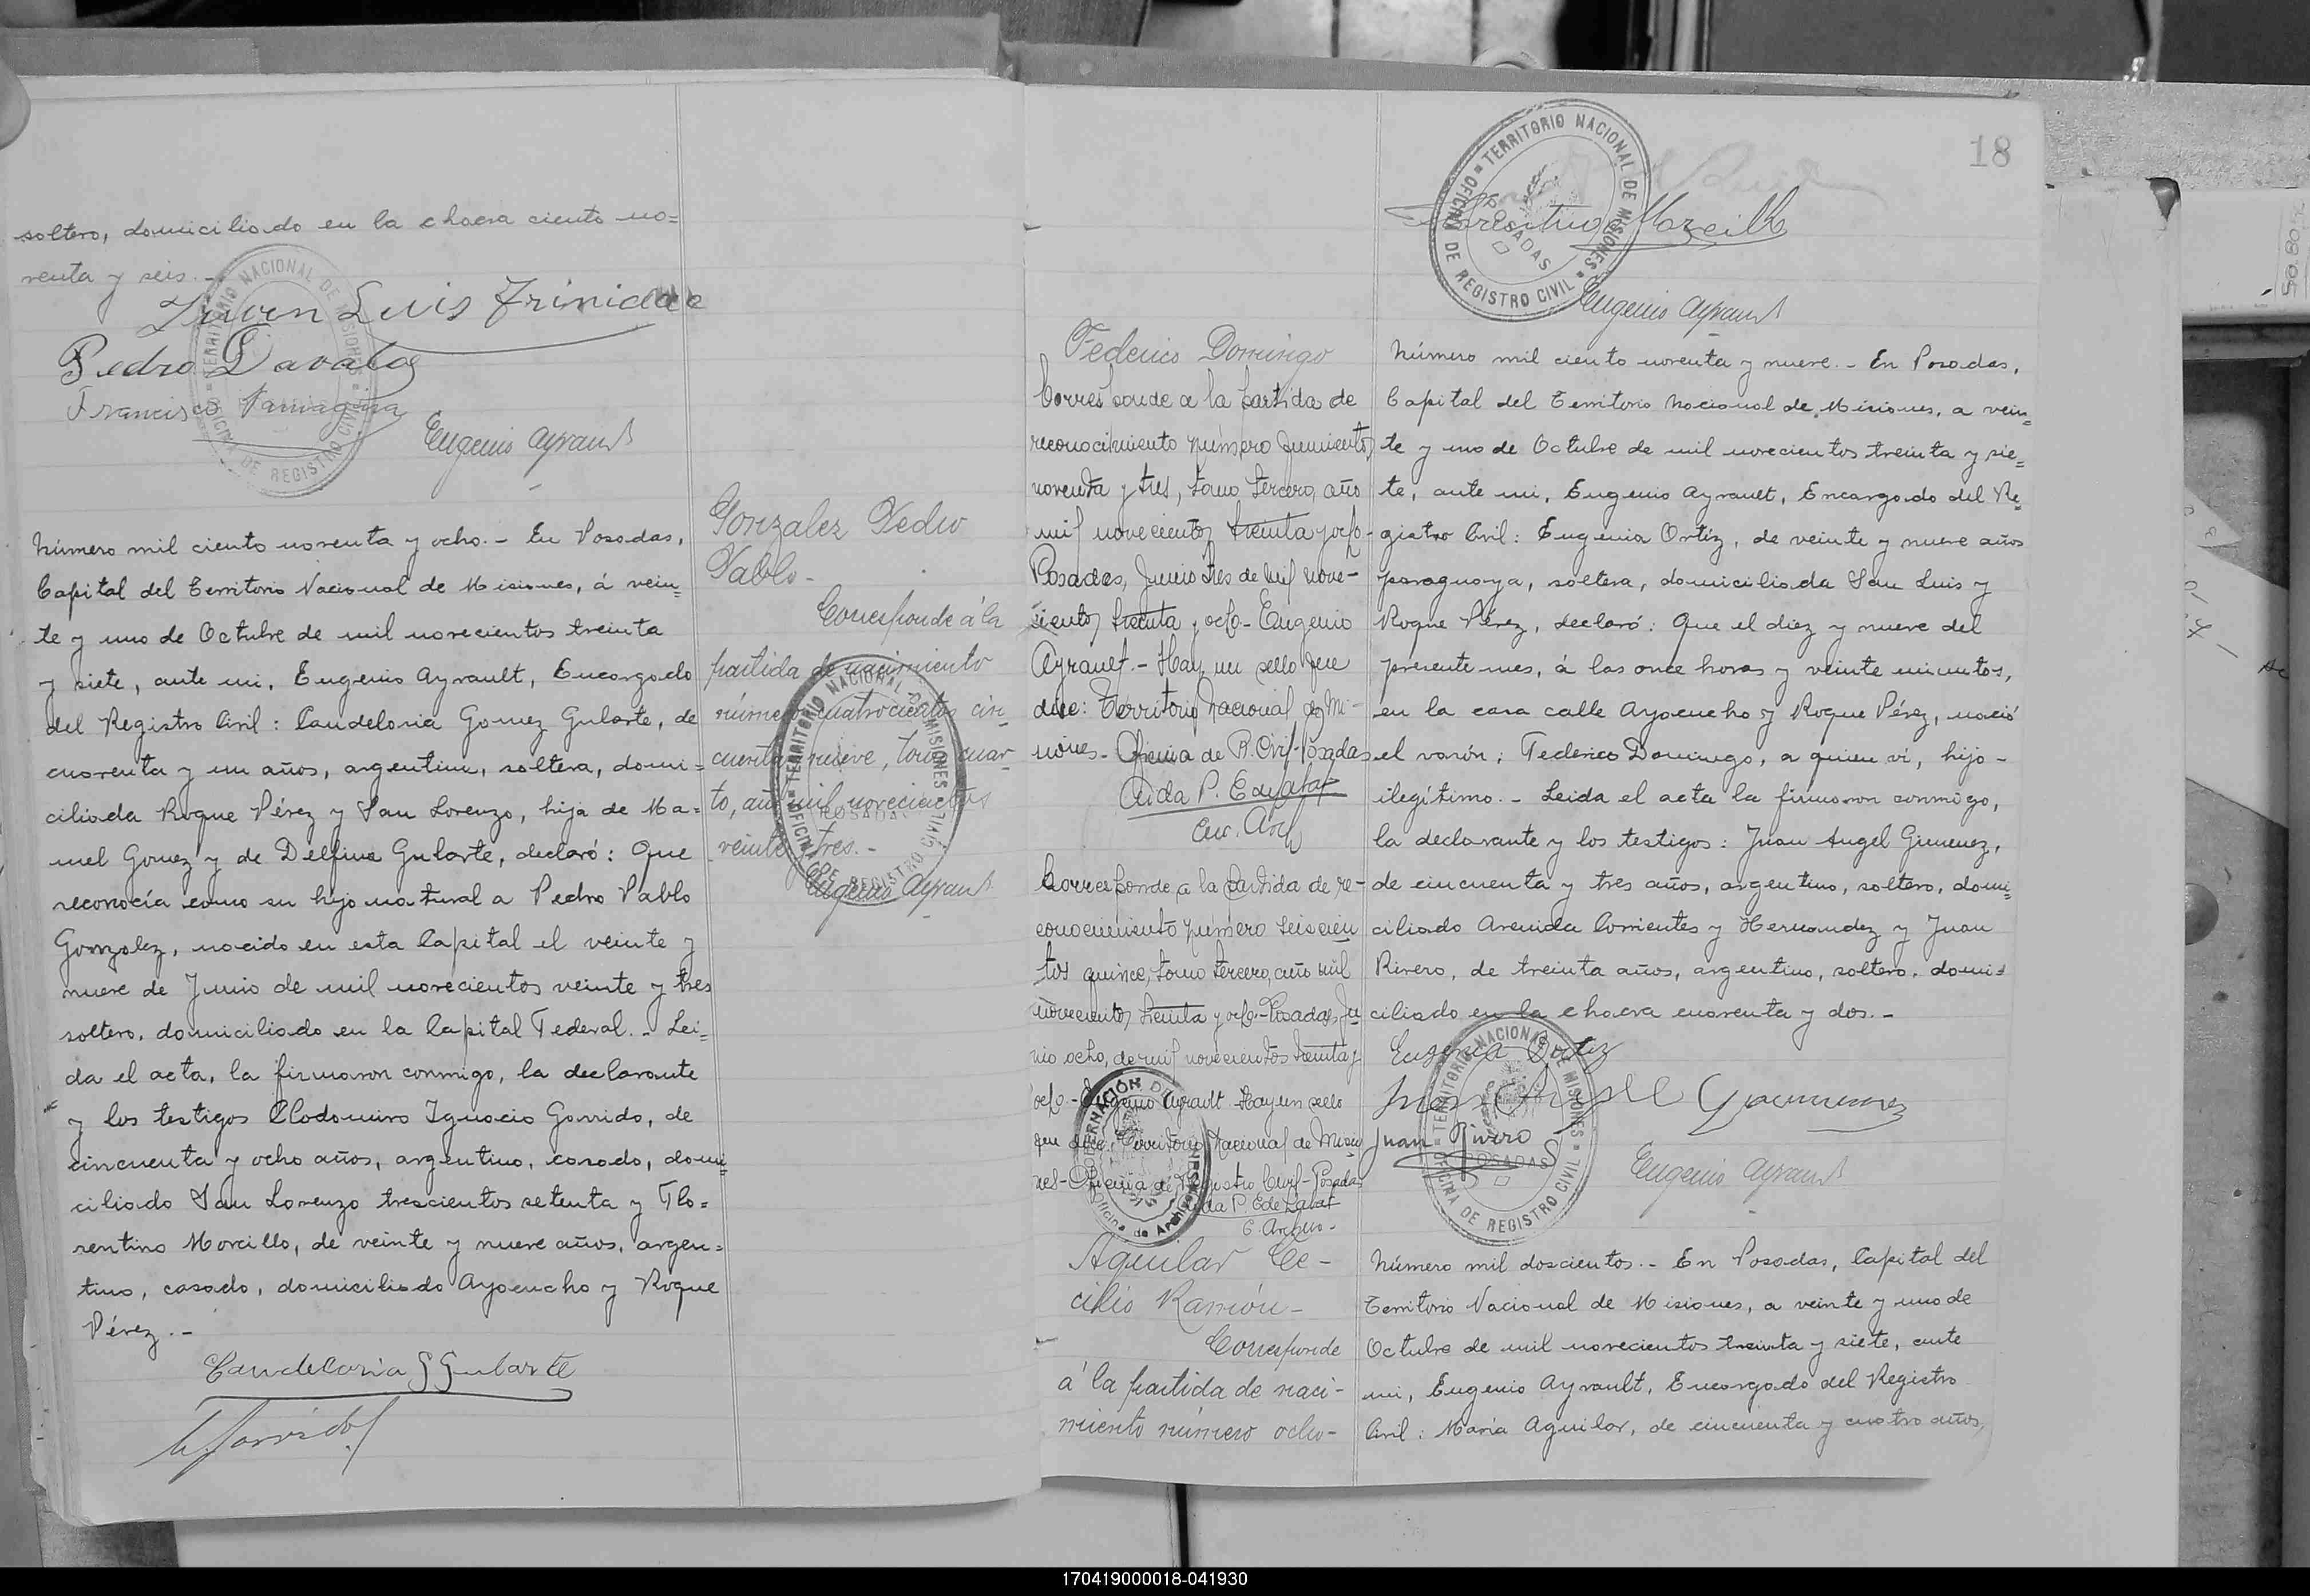 soltero, domiciliado en la chacra ciento no=
venta y seis.-
Juan Luis Trinidad
Pedro Davalos
Francisco
Eugenio Ayrault
Número mil ciento noventa y ocho.- En Posadas,
Capital del Territorio Nacional de Misiones, á vein=
te y uno de Octubre de mil novecientos treinta
y siete, ante mi, Eugenio Ayrault, Encargado
del Registro Civil: Candelaria Gomez Gularte, de
cuarenta y un años, argentina, soltera, domi=
ciliada Roque Pérez y San Lorenzo, hija de Ma=
nuel Gomez y de Delfina Gularte, declaró: Que
reconocía como su hijo natural a Pedro Pablo
Gonzalez, nacido en esta Capital el veinte y
nueve de Junio de mil novecientos veinte y tres
soltero, domiciliado en la Capital Federal.- Lei=
da el acta, la firmaron conmigo, la declarante
y los testigos Clodomiro Ignacio Garrido, de
cincuenta y ocho años, argentino, casado, domi=
ciliado San Lorenzo trescientos setenta y Flo=
rentino Morcillo, de veinte y nueve años, argen=
tino, casado, domiciliado Ayacucho y Roque
Pérez.-
Candelaria G Gularte
C Garrido
Gonzalez Pedro
Pablo-
Corresponde á la
partida de nacimiento
número cuatrocientos cin-
cuenta y nueve, tomo cuar-
to, año mil novecientos
veinte y tres.-
Eugenio Ayrault
TERRITORIO NACIONAL DE MISIONES
OFICINA DE REGISTRO CIVIL
POSADAS
18
TERRITORIO NACIONAL DE MISIONES
OFICINA DE REGISTRO CIVIL
POSADAS
Florentino Morcillo
Eugenio Ayrault
Federico Domingo
Corresponde a la partida de
reconocimiento número quinientos
noventa y tres, tomo tercero, año
mil novecientos treinta y ocho-
Posadas, Junio tres de mil nove-
cientos treinta y ocho- Eugenio
Ayrault.- Hay un sello que
dice: Territorio Nacional de Mi-
siones- Oficina de R. Civil- Posadas
Aida P.
Enc. Arch
Corresponde a la partida de re-
conocimiento número seiscien
tos quince, tomo tercero, año mil
novecientos treinta y ocho- Posadas, Ju
nio ocho, de mil novecientos treinta y
ocho.- Eugenio Ayrault- Hay un sello
que dice: Territorio Nacional de Misio
nes- Oficina de Registro Civil- Posadas
Aida P. E de
E. Archivo-
Número mil ciento noventa y nueve.- En Posadas,
Capital del Territorio Nacional de Misiones, a vein=
te y uno de Octubre de mil novecientos treinta y sie=
te, ante mi, Eugenio Ayrault, Encargado del Re=
gistro Civil: Eugenia Ortíz, de veinte y nueve años
paraguaya, soltera, domiciliada San Luis y
Roque Pérez, declaró: Que el diez y nueve del
presente mes, á las once horas y veinte minutos,
en la casa calle Ayacucho y Roque Pérez, nació
el varón: Federico Domingo, a quien ví, hijo-
ilegítimo.- Leida el acta la firmaron conmigo,
la declarante y los testigos: Juan Angel Gimenez,
de cincuenta y tres años, argentino, soltero, domi=
ciliado Avenida Corrientes y Hernandez y Juan
Rivero, de treinta años, argentino, soltero, domi=
ciliado en la chacra cuarenta y dos.-
Eugenia Ortiz
Juan Angel Gimenez
Juan Rivero
Eugenio Ayrault
TERRITORIO NACIONAL DE MISIONES
OFICINA DE REGISTRO CIVIL
POSADAS
Aguilar Ce-
cilio Ramón-
Corresponde
á la partida de naci-
miento número ocho-
Número mil doscientos.- En Posadas, Capital del
Territorio Nacional de Misiones, a veinte y uno de
Octubre de mil novecientos treinta y siete, ante
mi, Eugenio Ayrault, Encargado del Registro
Civil: María Aguilar, de cincuenta y cuatro años,
170419000018-041930